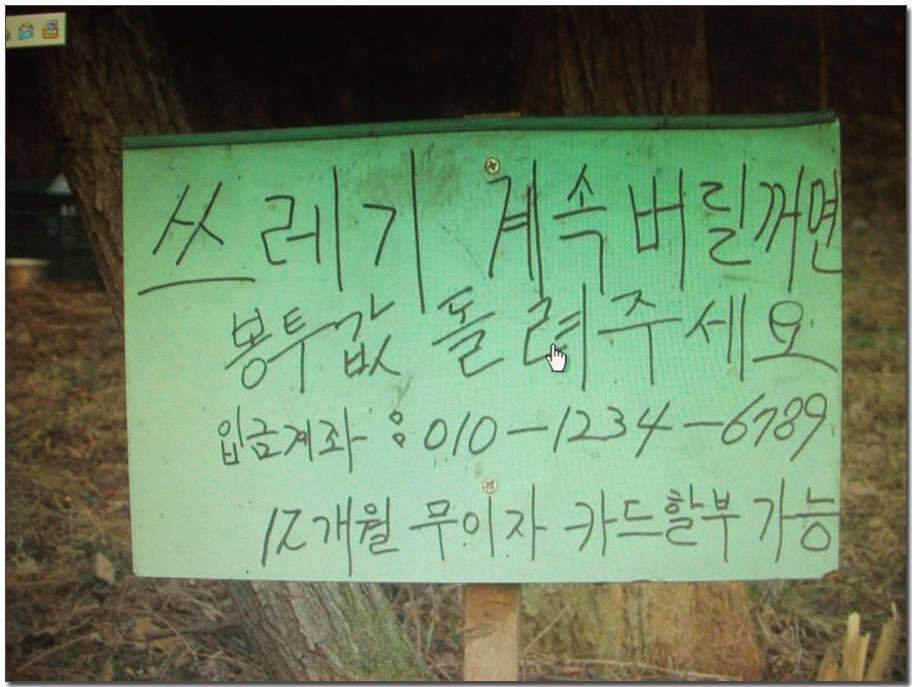 쓰레기 계속 버릴꺼면
봉투값 돌려주세요
입금계좌 : 010-1234-6789
12개월 무이자 카드할부 가능